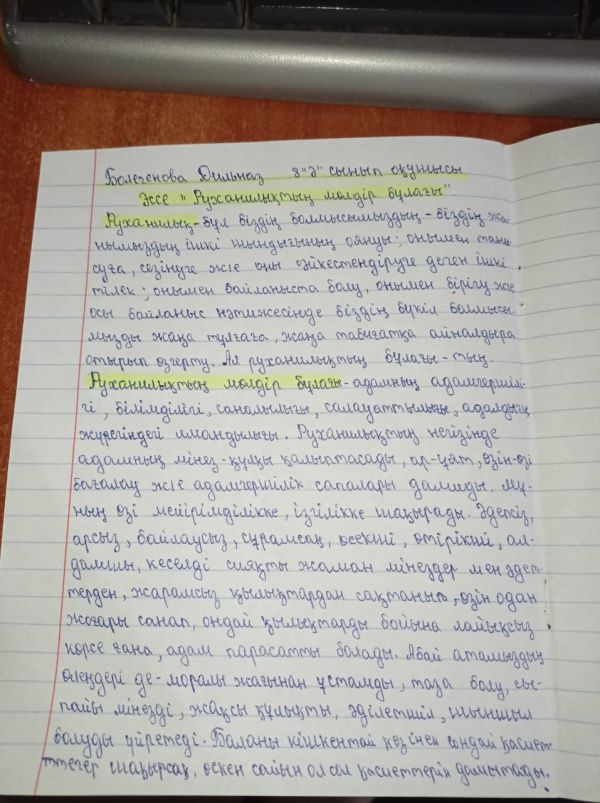 Болегенова Дильназ 8"Ә" сынып оқушысы
Эссе "Руханилықтың мөлдір бұлағы"
Руханилық-бұл біздің болмысымыздың-біздің жа-
нымыздың ішкі шындығының оянуы; онымен таны
суға, сезінуге және оны сәйкестендіруге деген ішкі
тілек; онымен байланыста болу, онымен бірігу және
осы байланыс нәтижесінде біздің бүкіл болмысы-
мызды жаңа тұлғаға, жаңа табиғатқа айналдыра
отырып өзгерту. Ал руханилықтың бұлағы-тың.
Руханилықтың мөлдір бұлағы-адамның адамгершілі-
гі, білімділігі, саналылығы, салауаттылығы, адалдығы,
жүрегіндегі имандылығы. Руханилықтың негізінде
адамның мінез-құлқы қалыптасады, ар-ұят, өзін-өзі
бағалау және адамгершілік сапалары дамиды. Мұ-
ның өзі мейірімділікке, ізгілікке шақырады. Әдепсіз,
арсыз, байлаусыз, сұрамсақ, өсекші, өтірікші, ал-
дамшы, кеселді сияқты жаман мінездер мен әдет-
терден, жарамсыз қылықтардан сақтанып, өзін одан
жоғары санап, ондай қылықтарды бойына лайықсыз
көрсе ғана, адам парасатты болады. Абай атамыздың
өлеңдері де-моральі жағынан ұстамды, таза болу, сы-
пайы мінезді, жақсы құлықты, әділетшіл, шыншыл
болуды үйретеді. Баланы кішкентай кезінен сондай қасиет
ттерге шақырсақ, өскен сайын ол сол қасиеттерін дамытады.